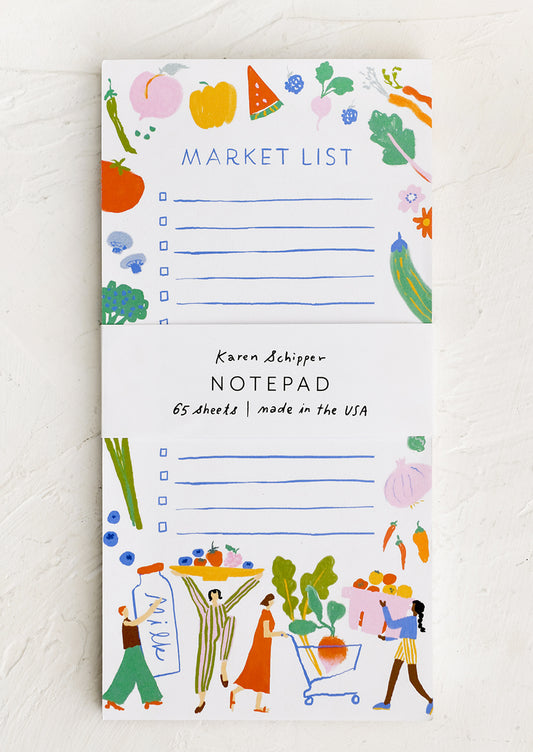 MARKET LIST
Karen Schipper
NOTEPAD
65 sheets | made in the USA
Milk